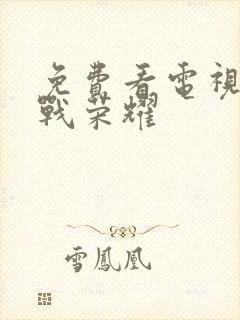 免費看電視
戰荣耀
雪鳳凰